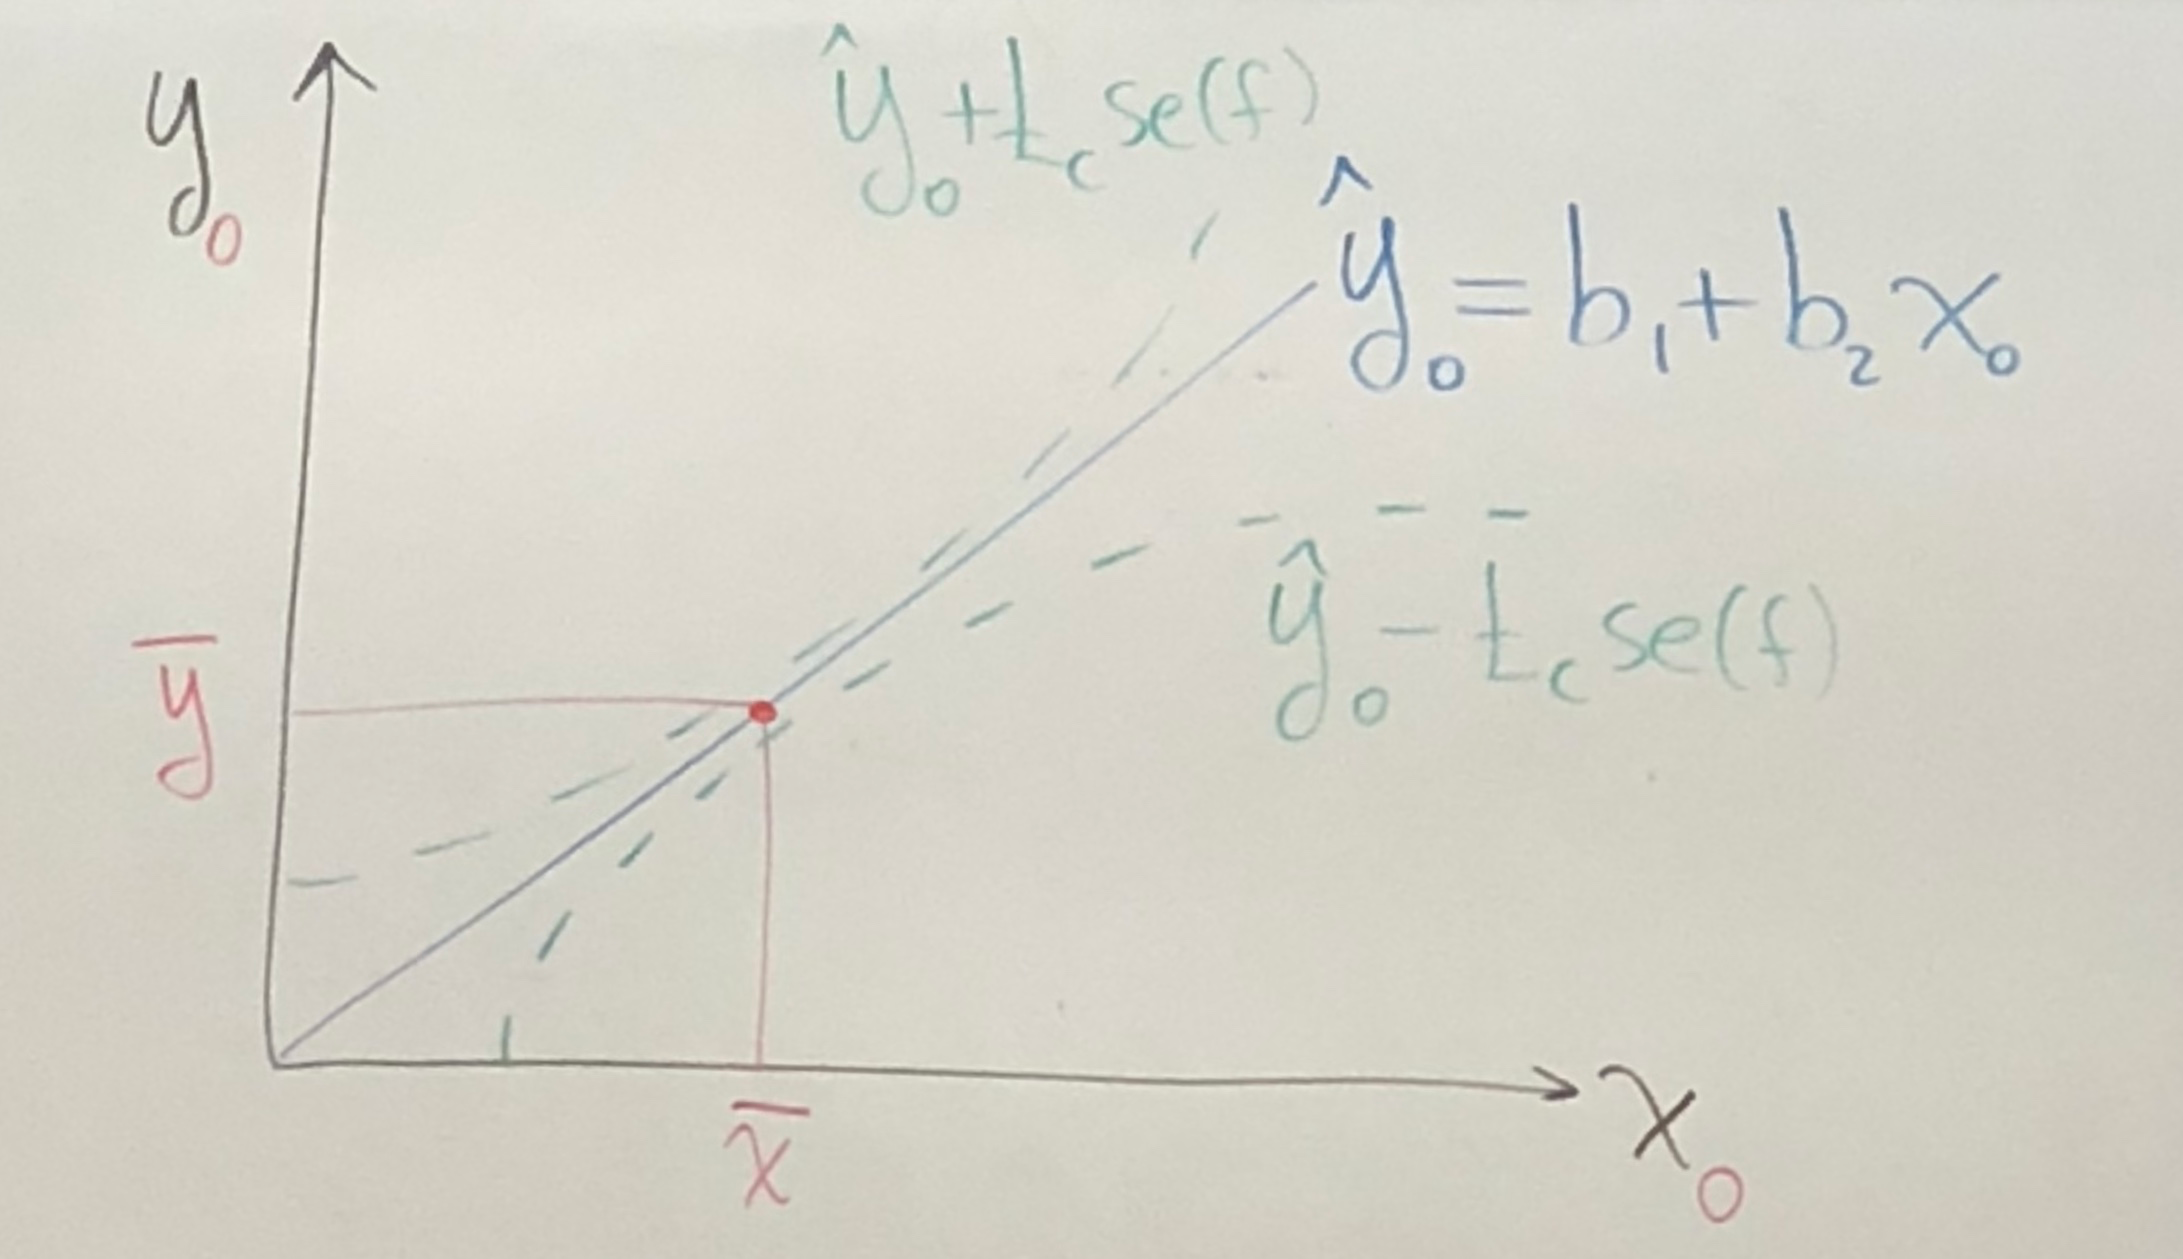 y₀
ŷ₀ + t_c se(f)
ŷ₀ = b₁ + b₂x₀
ŷ₀ - t_c se(f)
ȳ
x̄
x₀